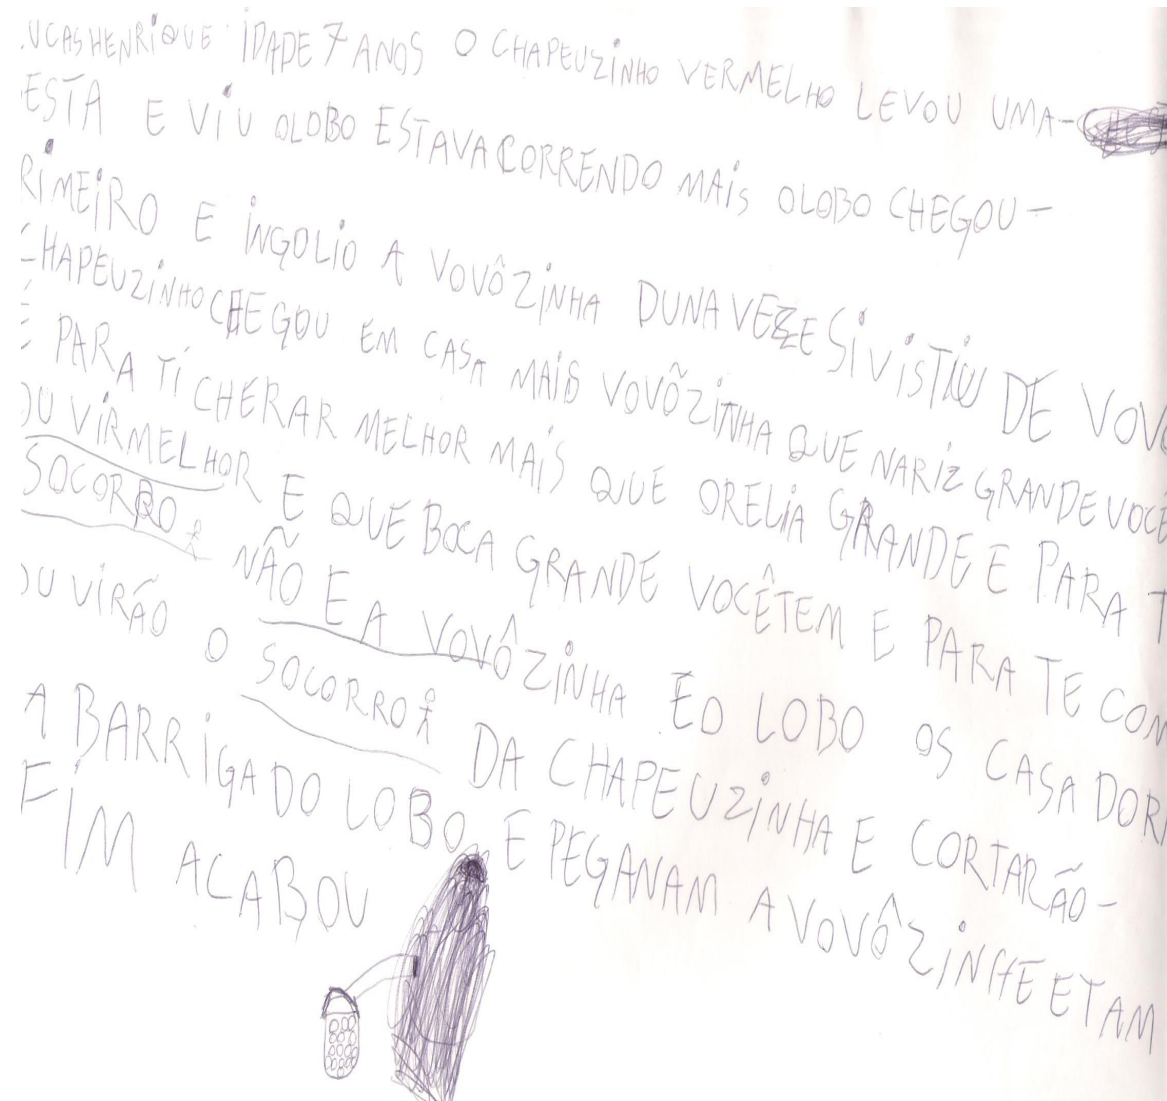 UCAS HENRIQUE IDADE 7 ANOS O CHAPEUZINHO VERMELHO LEVOU UMA-
ESTA E VIU OLOBO ESTAVA CORRENDO MAIS OLOBO CHEGOU-
RIMEIRO E INGOLIO A VOVÔZINHA DUNA VEZ E SIVISTIU DE VOV
CHAPEUZINHO CHEGOU EM CASA MAIS VOVÔZINHA QUE NARIZ GRANDE VOCÊ
É PARA TI CHERAR MELHOR MAIS QUE ORELIA GRANDE E PARA T
OUVIRMELHOR E QUE BOCA GRANDE VOCÊTEM E PARA TE COM
SOCORRO NÃO E A VOVÔZINHA ÉO LOBO OS CASADOR
OUVIRÃO O SOCORRO DA CHAPEUZINHA E CORTARÃO-
A BARRIGA DO LOBO E PEGANAM A VOVÔZINHE ETAM
FIM ACABOU